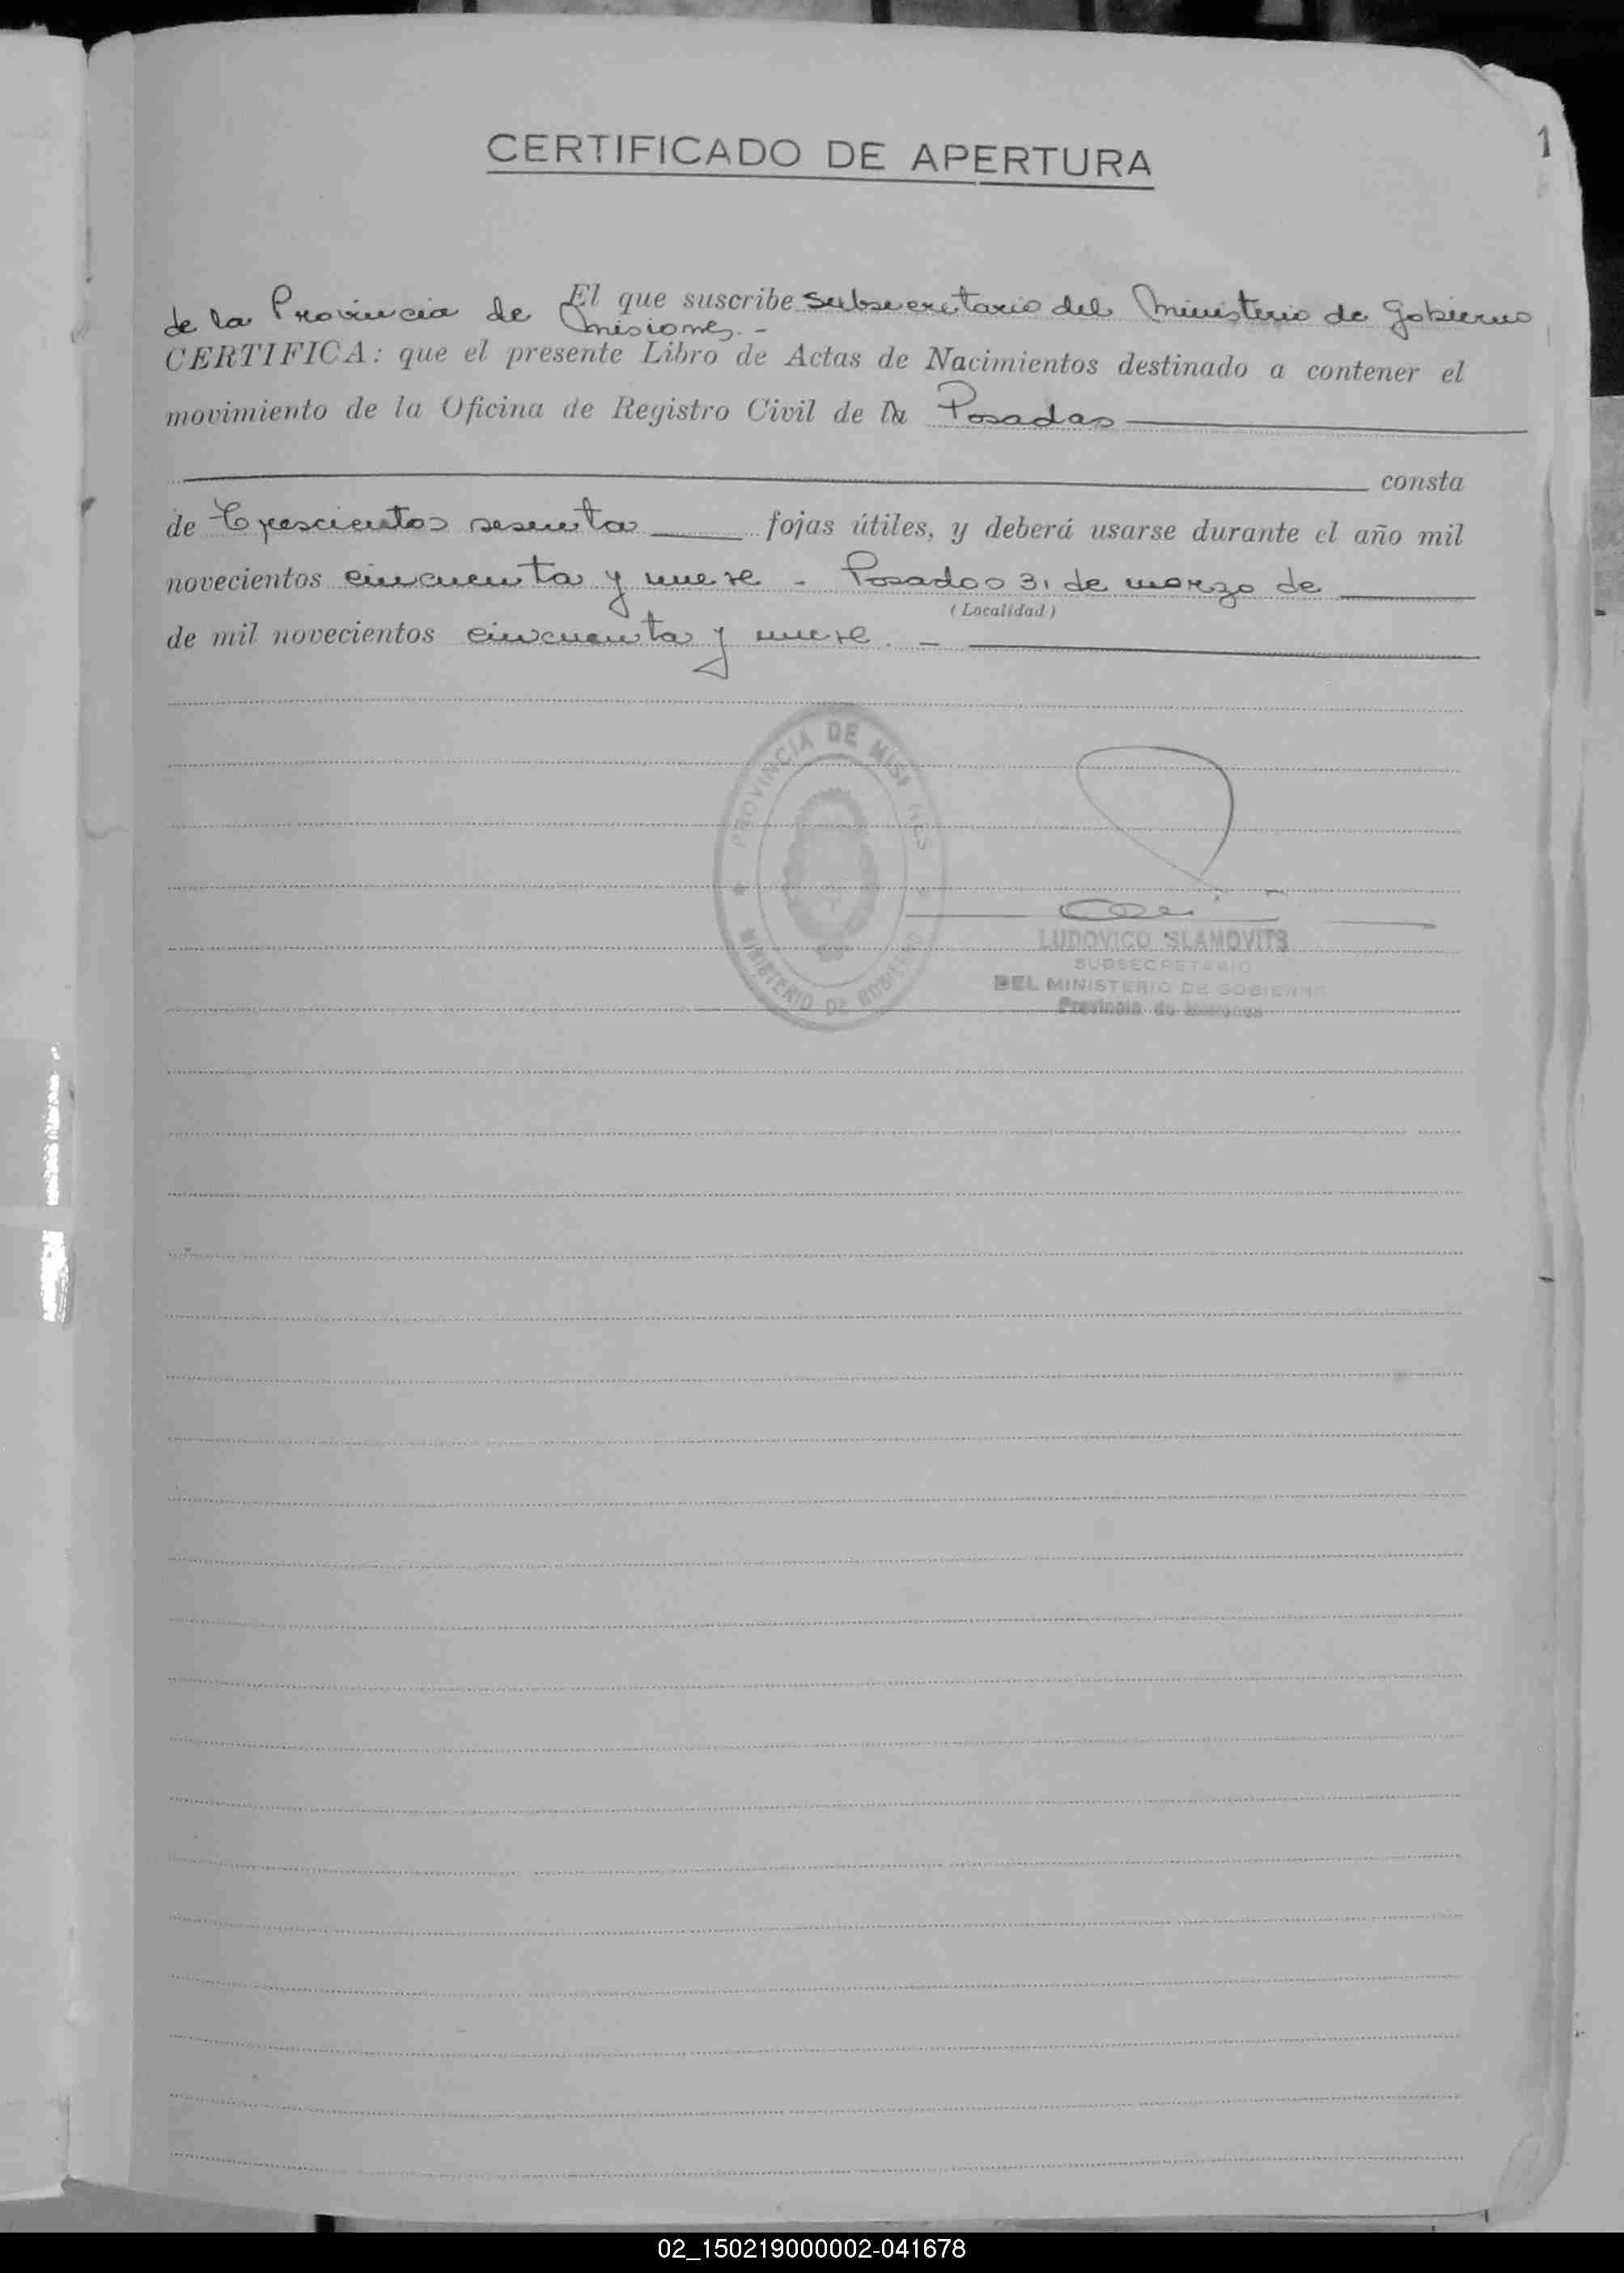 CERTIFICADO DE APERTURA
1
El que suscribe subsecretario del Ministerio de Gobierno
de la Provincia de Misiones.-
CERTIFICA: que el presente Libro de Actas de Nacimientos destinado a contener el
movimiento de la Oficina de Registro Civil de Posadas
consta
de Trescientos sesenta fojas útiles, y deberá usarse durante el año mil
novecientos cincuenta y nueve - Posadas 31 de marzo de
(Localidad)
de mil novecientos cincuenta y nueve. -
PROVINCIA DE MISIONES
MINISTERIO DE GOBIERNO
LUDOVICO SLAMOVITS
SUBSECRETARIO
DEL MINISTERIO DE GOBIERNO
Provincia de Misiones
02_150219000002-041678